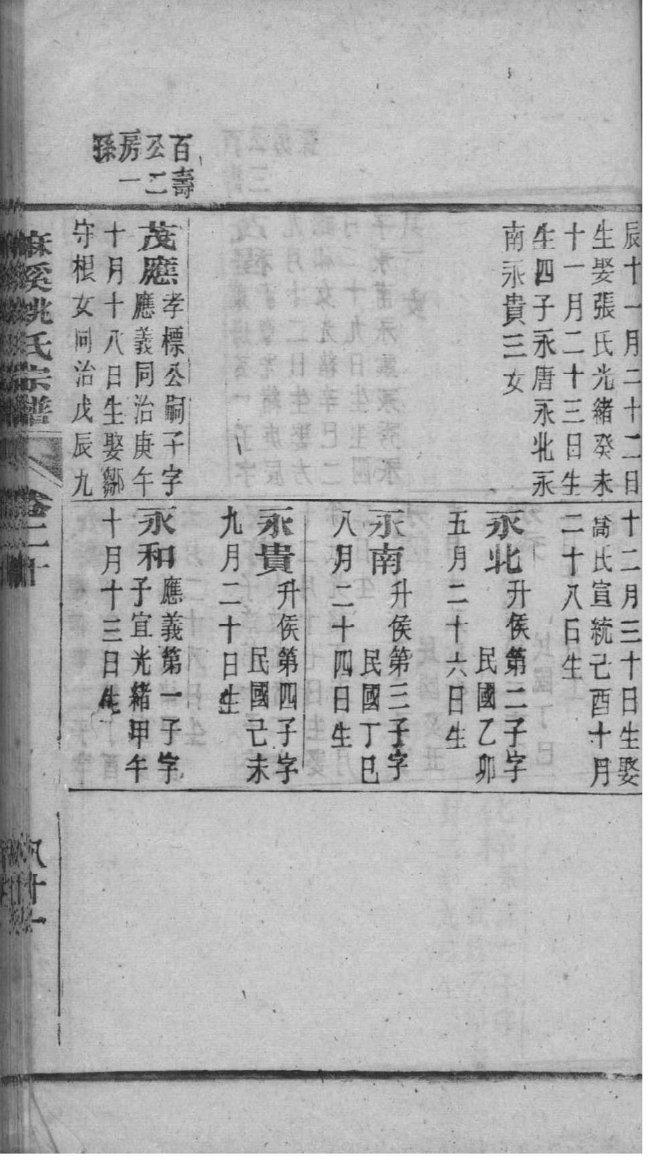 百壽
公二
房一
孫
辰十一月二十二日
生娶張氏光緒癸未
十一月二十三日生
生四子永唐永北永
南永貴三女
茂應孝標公嗣子字
應義同治庚午
十月十八日生娶鄒
守根女同治戊辰九
十二月三十日生娶
氏宣統己酉十月
二十八日生
永北升侯第二子字
民國乙卯
五月二十六日生
永南升侯第三子字
民國丁巳
八月二十四日生
永貴升侯第四子字
民國己未
九月二十日生
永和應義第一子字
子宜光緒甲午
十月十三日生
麻溪姚氏宗譜
卷二十
八十一